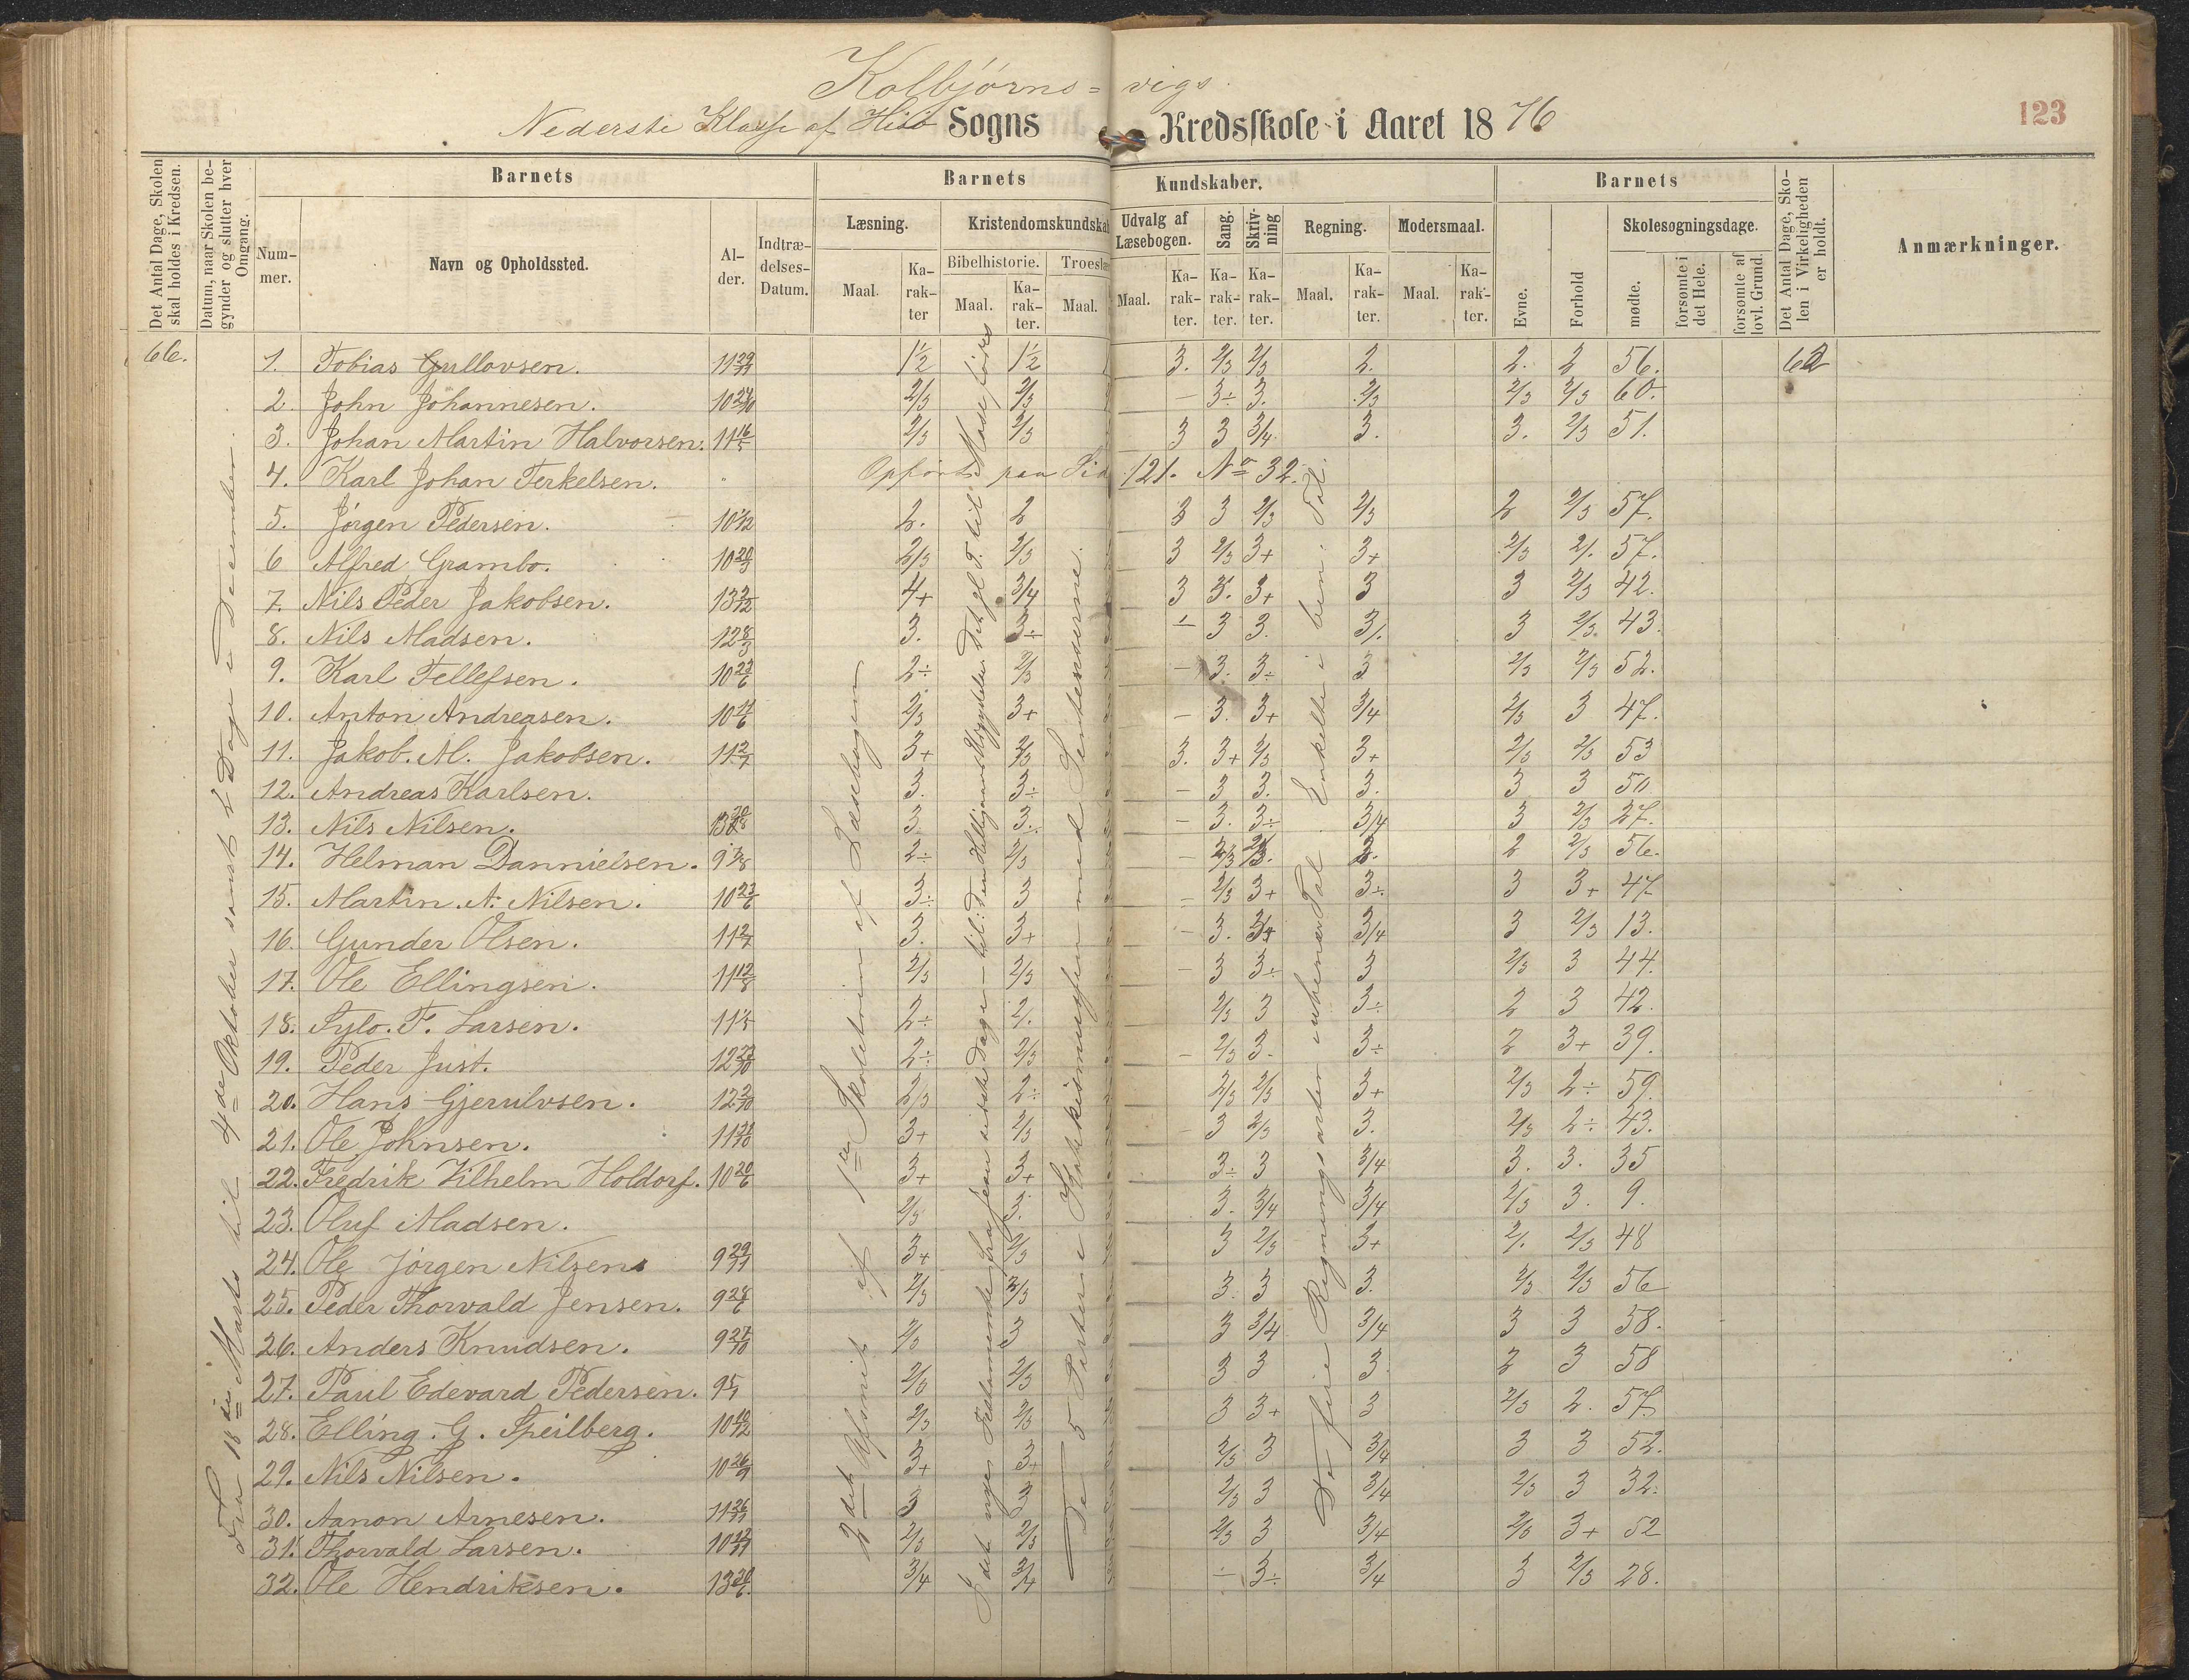 Kolbjørns=vigs
Nederste Klasse af Hisø Sogns Kredsskole i Aaret 1876
123
Det Antal Dage, Skolen skal holdes i Kredsen.
Datum, naar Skolen begynder og slutter hver Omgang.
Barnets
Nummer.
Navn og Opholdssted.
Alder.
Indtrædelses-Datum.
Barnets Kundskaber.
Læsning.
Maal.
Karakter
Kristendomskundskab
Bibelhistorie.
Maal.
Karakter.
Troeslære
Maal.
Udvalg af Læsebogen.
Maal.
Karakter.
Sang.
Karakter.
Skrivning
Karakter.
Regning.
Maal.
Karakter.
Modersmaal.
Maal.
Karakter.
Barnets
Evne.
Forhold
Skolesøgningsdage.
mødte.
forsømte i det Hele.
forsømte af lovl. Grund.
Det Antal Dage, Skolen i Virkeligheden er holdt.
Anmærkninger.
66.
Fra 18de Marts til 4de Oktober samt 2 Dage i December.
2det Afsnit af 1ste Skoletrin af Læsebogen
De 5 Parter i Katekismusen med
De fire Regningsarter i ubenævnte Tal. Enkelte i ben. Tal.
1. Tobias Gullovsen. 11 29/11 1½ 1½ 3. 2/3 2/3 2. 2. 2 56. 62
2. John Johannesen. 10 24/10 2/3 2/3 – 3÷ 3. 2/3 2/3 2/3 60.
3. Johan Martin Halvorsen. 11 16/5 2/3 2/3 3 3 3/4 3. 3. 2/3 51.
4. Karl Johan Terkelsen. Opført paa Side 121. No 32.
5. Jørgen Pedersen. 10 1/12 2. 2 3 3 2/3 2/3 2 2/3 57.
6 Alfred Grambo. 10 20/3 2/3 2/3 3 2/3 3+ 3+ 2/3 2/. 57.
7. Nils Peder Jakobsen. 13 3/12 4+ 3/4 3 3. 3+ 3 3 2/3 42.
8. Nils Madsen. 12 8/3 3. 3÷ ÷ 3 3. 3/. 3 2/3 43.
9. Karl Tellefsen. 10 23/6 2÷ 2/3 – 3. 3÷ 3 2/3 2/3 52.
10. Anton Andreasen. 10 17/6 2/3 3+ – 3. 3+ 3/4 2/3 3 47.
11. Jakob. M. Jakobsen. 11 2/7 3+ 2/3 3. 3+ 2/3 3+ 2/3 2/3 53
12. Andreas Karlsen. 3. 3÷ – 3 3. 3. 3 3 50
13. Nils Nilsen. 3 3. – 3. 3÷ 3/4 3 2/3 27.
14. Helman Dannielsen. 9 1/8 2÷ 2/3 – 2/3 2 2/3 56.
15. Martin. N. Nilsen. 10 23/6 3÷ 3 – 2/3 3+ 3÷ 3 3+ 47
16. Gunder Olsen. 11 2/7 3. 3+ – 3. 3/4 3/4 3 2/3 13.
17. Ole Ellingsen. 11 12/8 2/3 2/3 – 3 3÷ 3 2/3 3 44.
18. Sylo. F. Larsen. 11 1/5 2÷ 2/. 2/3 3 3÷ 2 3 42.
19. Peder Just. 12 23/10 2÷ 2/3 – 2/3 3. 3÷ 2 3+ 39.
20. Hans Gjerulvsen. 12 3/10 2/3 2÷ 2/3 2/3 3+ 2/3 2÷ 59.
21. Ole Johnsen. 11 21/10 3+ 2/3 – 3 2/3 3. 2/3 2÷ 43.
22. Fredrik Vilhelm Holdorf. 10 20/6 3+ 3+ 3÷ 3 3/4 3. 3. 35
23. Oluf Madsen. 2/3 3. 3. 3/4 3/4 2/3 3. 9.
24. Ole Jørgen Nilsen 9 29/11 3+ 2/3 3 2/3 3+ 2/. 2/3 48
25. Peder Thorvald Jensen. 9 28/6 2/3 2/3 3. 3 3. 2/3 2/3 56
26. Anders Knudsen. 9 27/10 2/3 3 3 3/4 3/4 3 3 58.
27. Paul Edevard Pedersen. 9 5/1 2/3 2/3 3 3 3. 2 3 58
28. Elling. G. Speilberg. 10 10/12 2/3 2/3 3 3+ 3 2/3 2. 57.
29. Nils Nilsen. 10 26/9 3+ 3+ 2/3 3 3/4 3 3 52.
30. Aanon Arnesen. 11 26/11 3 3 2/3 3 3/4 2/3 3 32.
31. Thorvald Larsen. 10 2/3 2/3 2/3 3 3/4 2/3 3+ 52
32. Ole Hendriksen. 13 20/6 3/4 3/4 ÷ 3÷ 3/4 3 2/3 28.